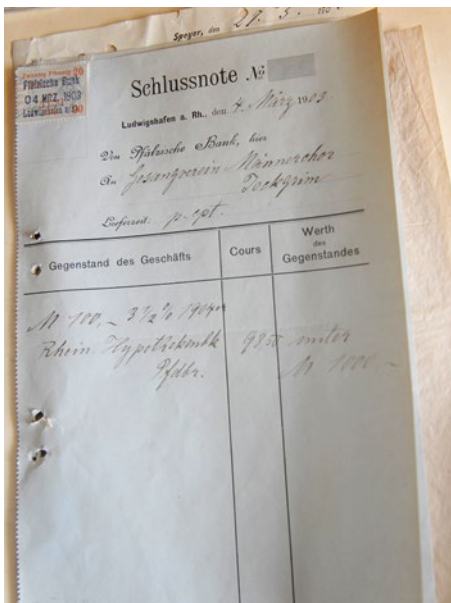 Speyer, den 27. 3.
Zwanzig Pfennig 20
Pfälzische Bank
04 MRZ. 1903
Ludwigshafen a/Rh
Schlussnote №
Ludwigshafen a. Rh., den 4. März 1903
Von Pfälzische Bank, hier
An Gesangverein Männerchor
Jockgrim
Lieferzeit: p. cpt.
Gegenstand des Geschäfts
Cours
Werth
des
Gegenstandes
M 100,- 3 1/2 % 1904er
Rhein. Hypothekenbk 98,50 unter
Pfdbr. M 1000,-